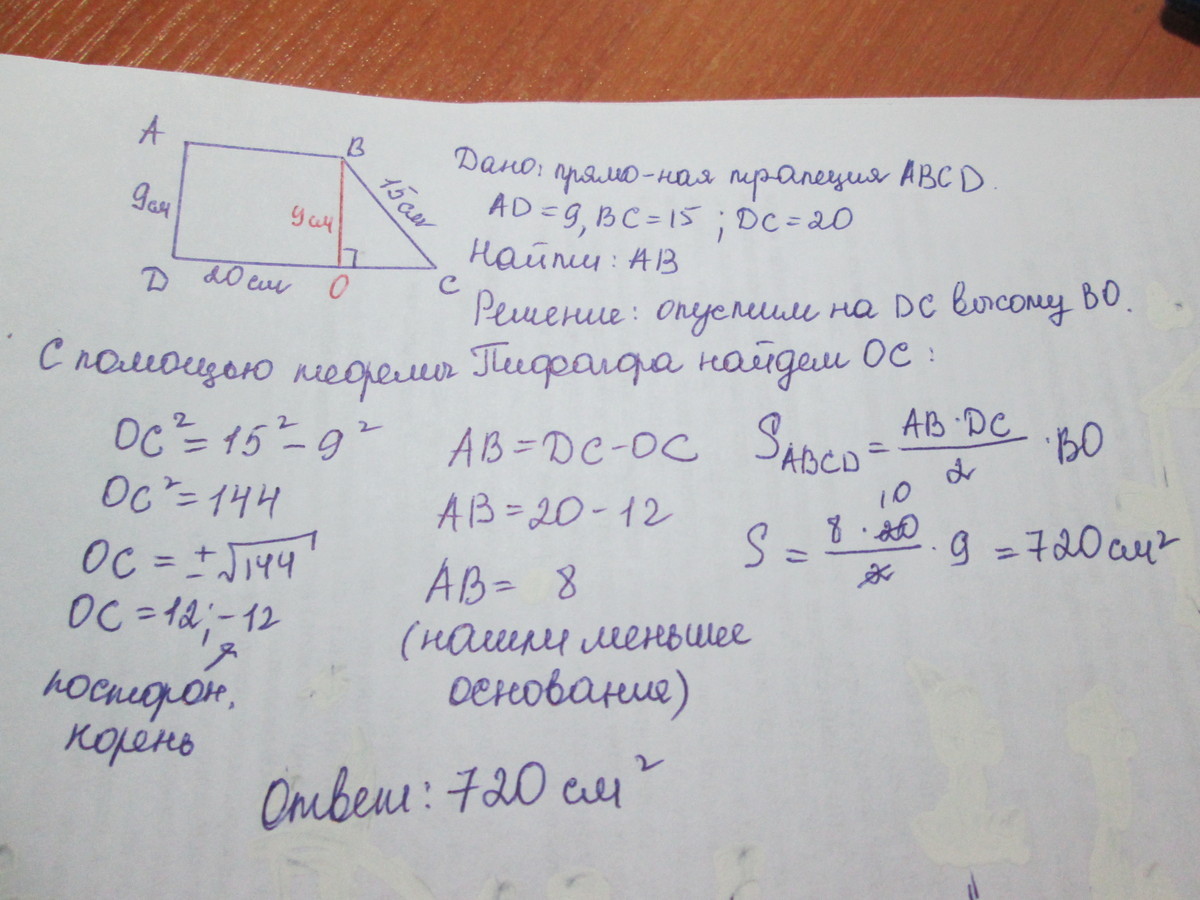 A
B
9см
9см
15см
D
20 см
O
C
Дано: прямо-ная трапеция ABCD.
AD = 9, BC = 15 ; DC = 20
Найти : AB
Решение: опустим на DC высоту BO.
С помощью теоремы Пифагора найдем OC :
OC² = 15² - 9²
OC² = 144
OC = ±√144
OC = 12; -12
посторон.
корень
AB = DC - OC
AB = 20 - 12
AB = 8
(нашли меньшее
основание)
S ABCD = AB · DC / 2 · BO
10
S = 8 · 20 / 2 · 9 = 720 см²
Ответ: 720 см²